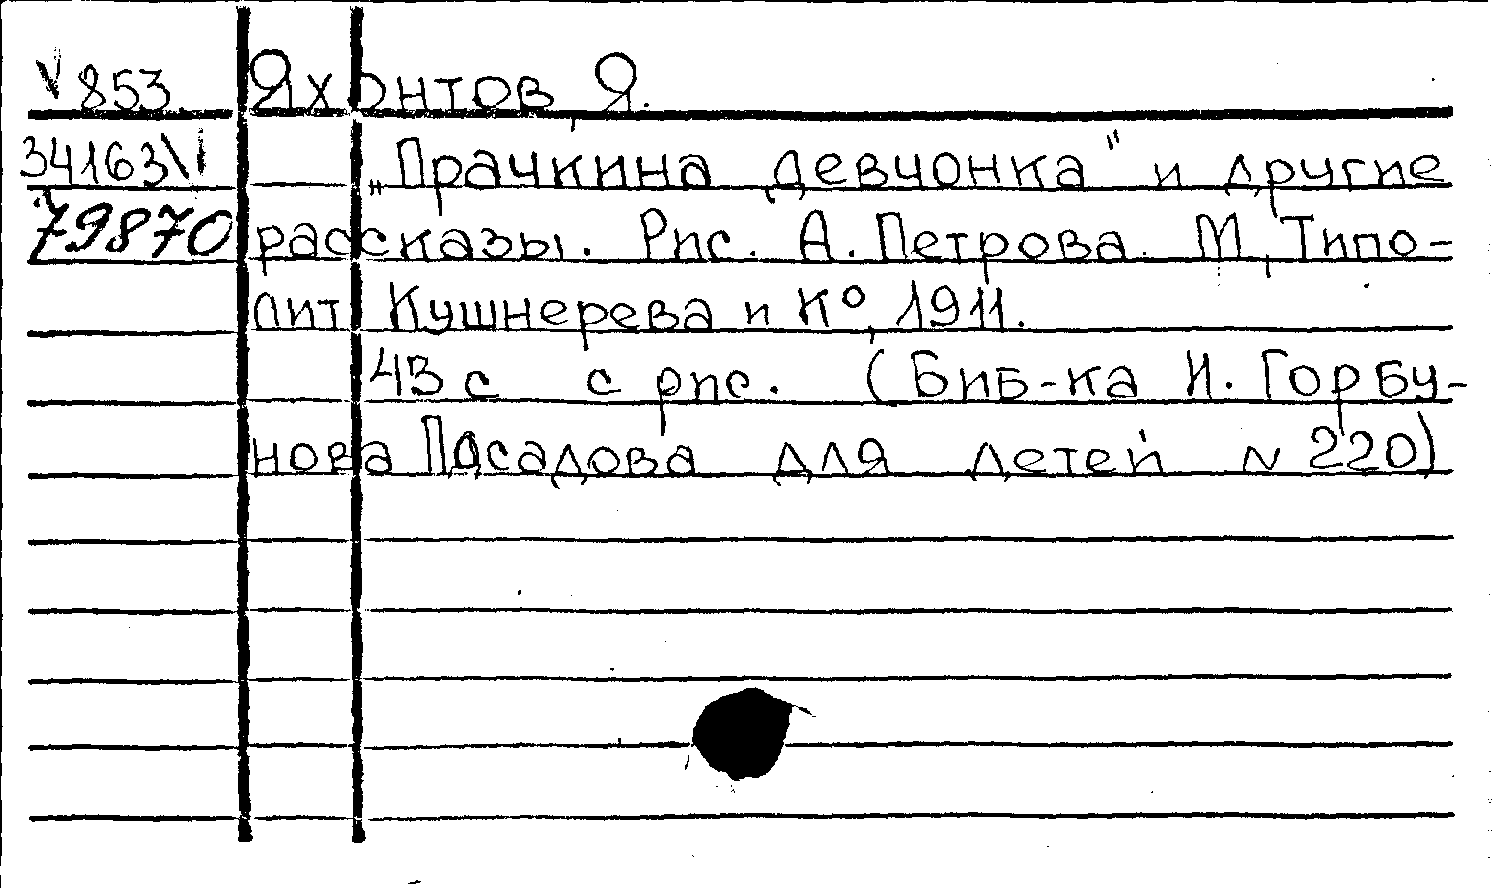 V 853 Яхонтов Я.
34163\1 „Прачкина девчонка" и другие
79870 рассказы. Рис. А. Петрова. М, Типо-
лит Кушнерева и К°, 1911.
43 с с рис. (Биб-ка И. Горбу-
нова Посадова для детей N 220)